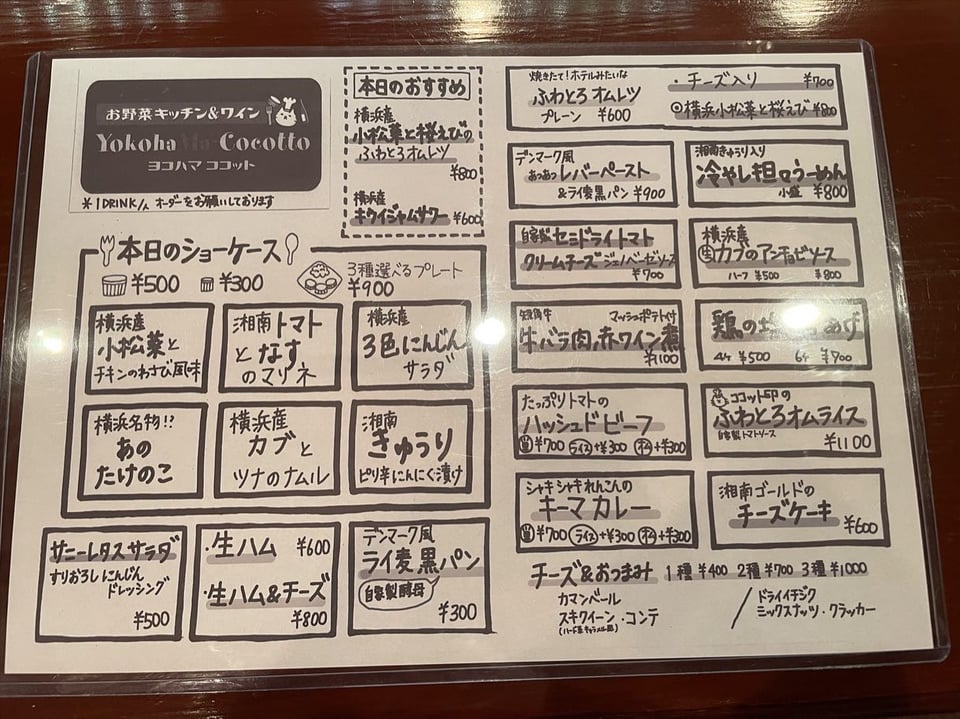 お野菜キッチン&ワイン
Yokoha Cocotto
ヨコハマ ココット
*1DRINK/人 オーダーをお願いしております
本日のおすすめ
横浜産
小松菜と桜えびの
ふわとろオムレツ
¥800
横浜産
キウイジャムサワー ¥600
本日のショーケース
¥500 ¥300
3種選べるプレート
¥900
横浜産
小松菜と
チキンのわさび風味
湘南トマト
となす
のマリネ
横浜産
3色にんじん
サラダ
横浜名物!?
あの
たけのこ
横浜産
カブと
ツナのナムル
湘南
きゅうり
ピリ辛にんにく漬け
サニーレタスサラダ
すりおろしにんじん
ドレッシング
¥500
・生ハム ¥600
・生ハム&チーズ
¥800
デンマーク風
ライ麦黒パン
自家製酵母
¥300
焼きたて!ホテルみたいな
ふわとろオムレツ
プレーン ¥600
・チーズ入り ¥700
◎横浜小松菜と桜えび ¥800
デンマーク風
あつあつレバーペースト
&ライ麦黒パン ¥900
湘南きゅうり入り
冷やし担々うーめん
小盛 ¥800
自家製セミドライトマト
クリームチーズジェノベーゼソース
¥700
横浜産
生カブのアンチョビソース
ハーフ ¥500 ¥800
短角牛 マッシュポテト付
牛バラ肉赤ワイン煮
¥1100
鶏の
あげ
4ケ ¥500 6ケ ¥700
たっぷりトマトの
ハッシュドビーフ
単¥700 ライス+¥300 オム+¥300
ココット印の
ふわとろオムライス
自家製トマトソース
¥1100
シャキシャキれんこんの
キーマカレー
単¥700 ライス+¥300 オム+¥300
湘南ゴールドの
チーズケーキ
¥600
チーズ&おつまみ 1種¥400 2種¥700 3種¥1000
カマンベール
スキクイーン・コンテ
ドライイチジク
ミックスナッツ・クラッカー